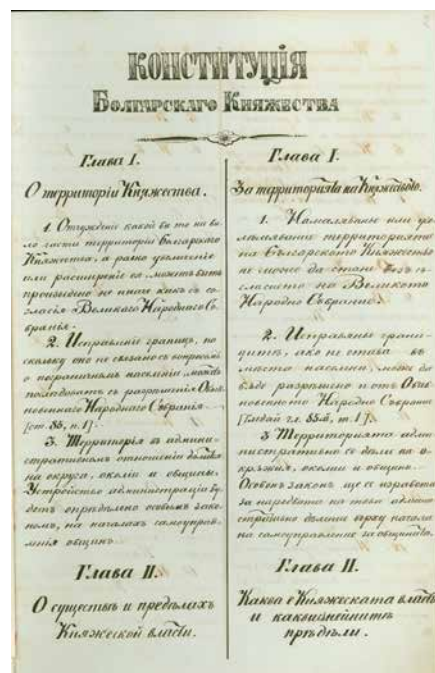 КОНСТИТУЦІЯ
БОЛГАРСКАГО КНЯЖЕСТВА
Глава I.
О территоріи Княжества.
1. Отчужденіе какой бы то ни бы
ло части территоріи Болгарскаго
Княжества, а равно уменьшеніе
или расширеніе ея, можетъ быть
произведено не иначе какъ съ со
гласія Великаго Народнаго Со
бранія.
2. Исправленіе границъ, по
скольку оно не связано съ вопросомъ
о пограничномъ населеніи, можетъ
съ разрѣшенія Обык
новеннаго Народнаго Собранія
[ст. 85, п. 1].
3. Территорія въ админи
стративномъ отношеніи дѣлится
на округа, околіи и общины.
Устройство администраціи бу
детъ опредѣлено особымъ зако
номъ, на началахъ самоуправ
ленія общинъ.
Глава II.
О существѣ и предѣлахъ
Княжеской власти.
Глава I.
За территорията на Княжеството.
1. Намаляванье или
территорията
на Българското Княжество
не може да стане безъ съ
гласието на Великото
Народно Събрание.
2. Исправянье грани
цитѣ, ако не става въ
място населени, може да
бѫде разрешено и отъ Оби
кновенното Народно Събрание
[гл. 85, т. 1].
3. Территорията адми
нистративно се дѣли на о
крѫжия, околии и общини.
Особенъ законъ ще се изработи
за наредбата на това админи
дѣление върху начала
на самоуправление за общинитѣ.
Глава II.
Каква е Княжеската власть
и каква нейнитѣ
прѣдѣли.